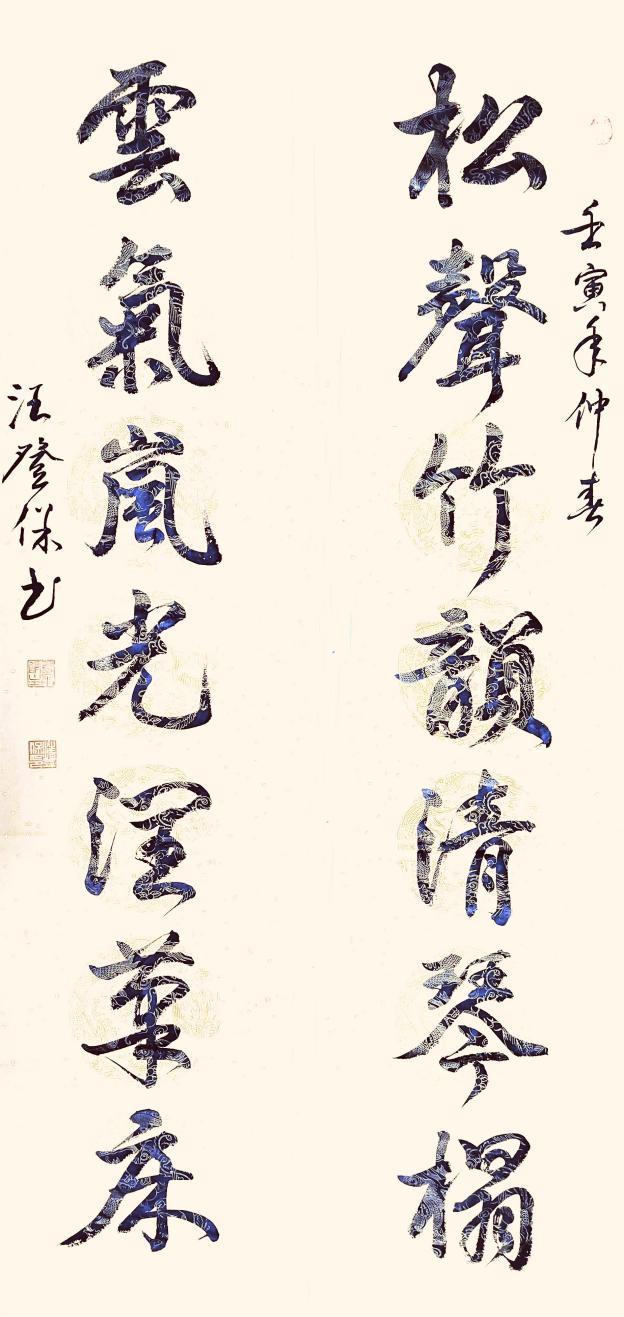 壬寅年仲春
松聲竹韻清琴榻
雲氣嵐光潤筆床
汪登保书